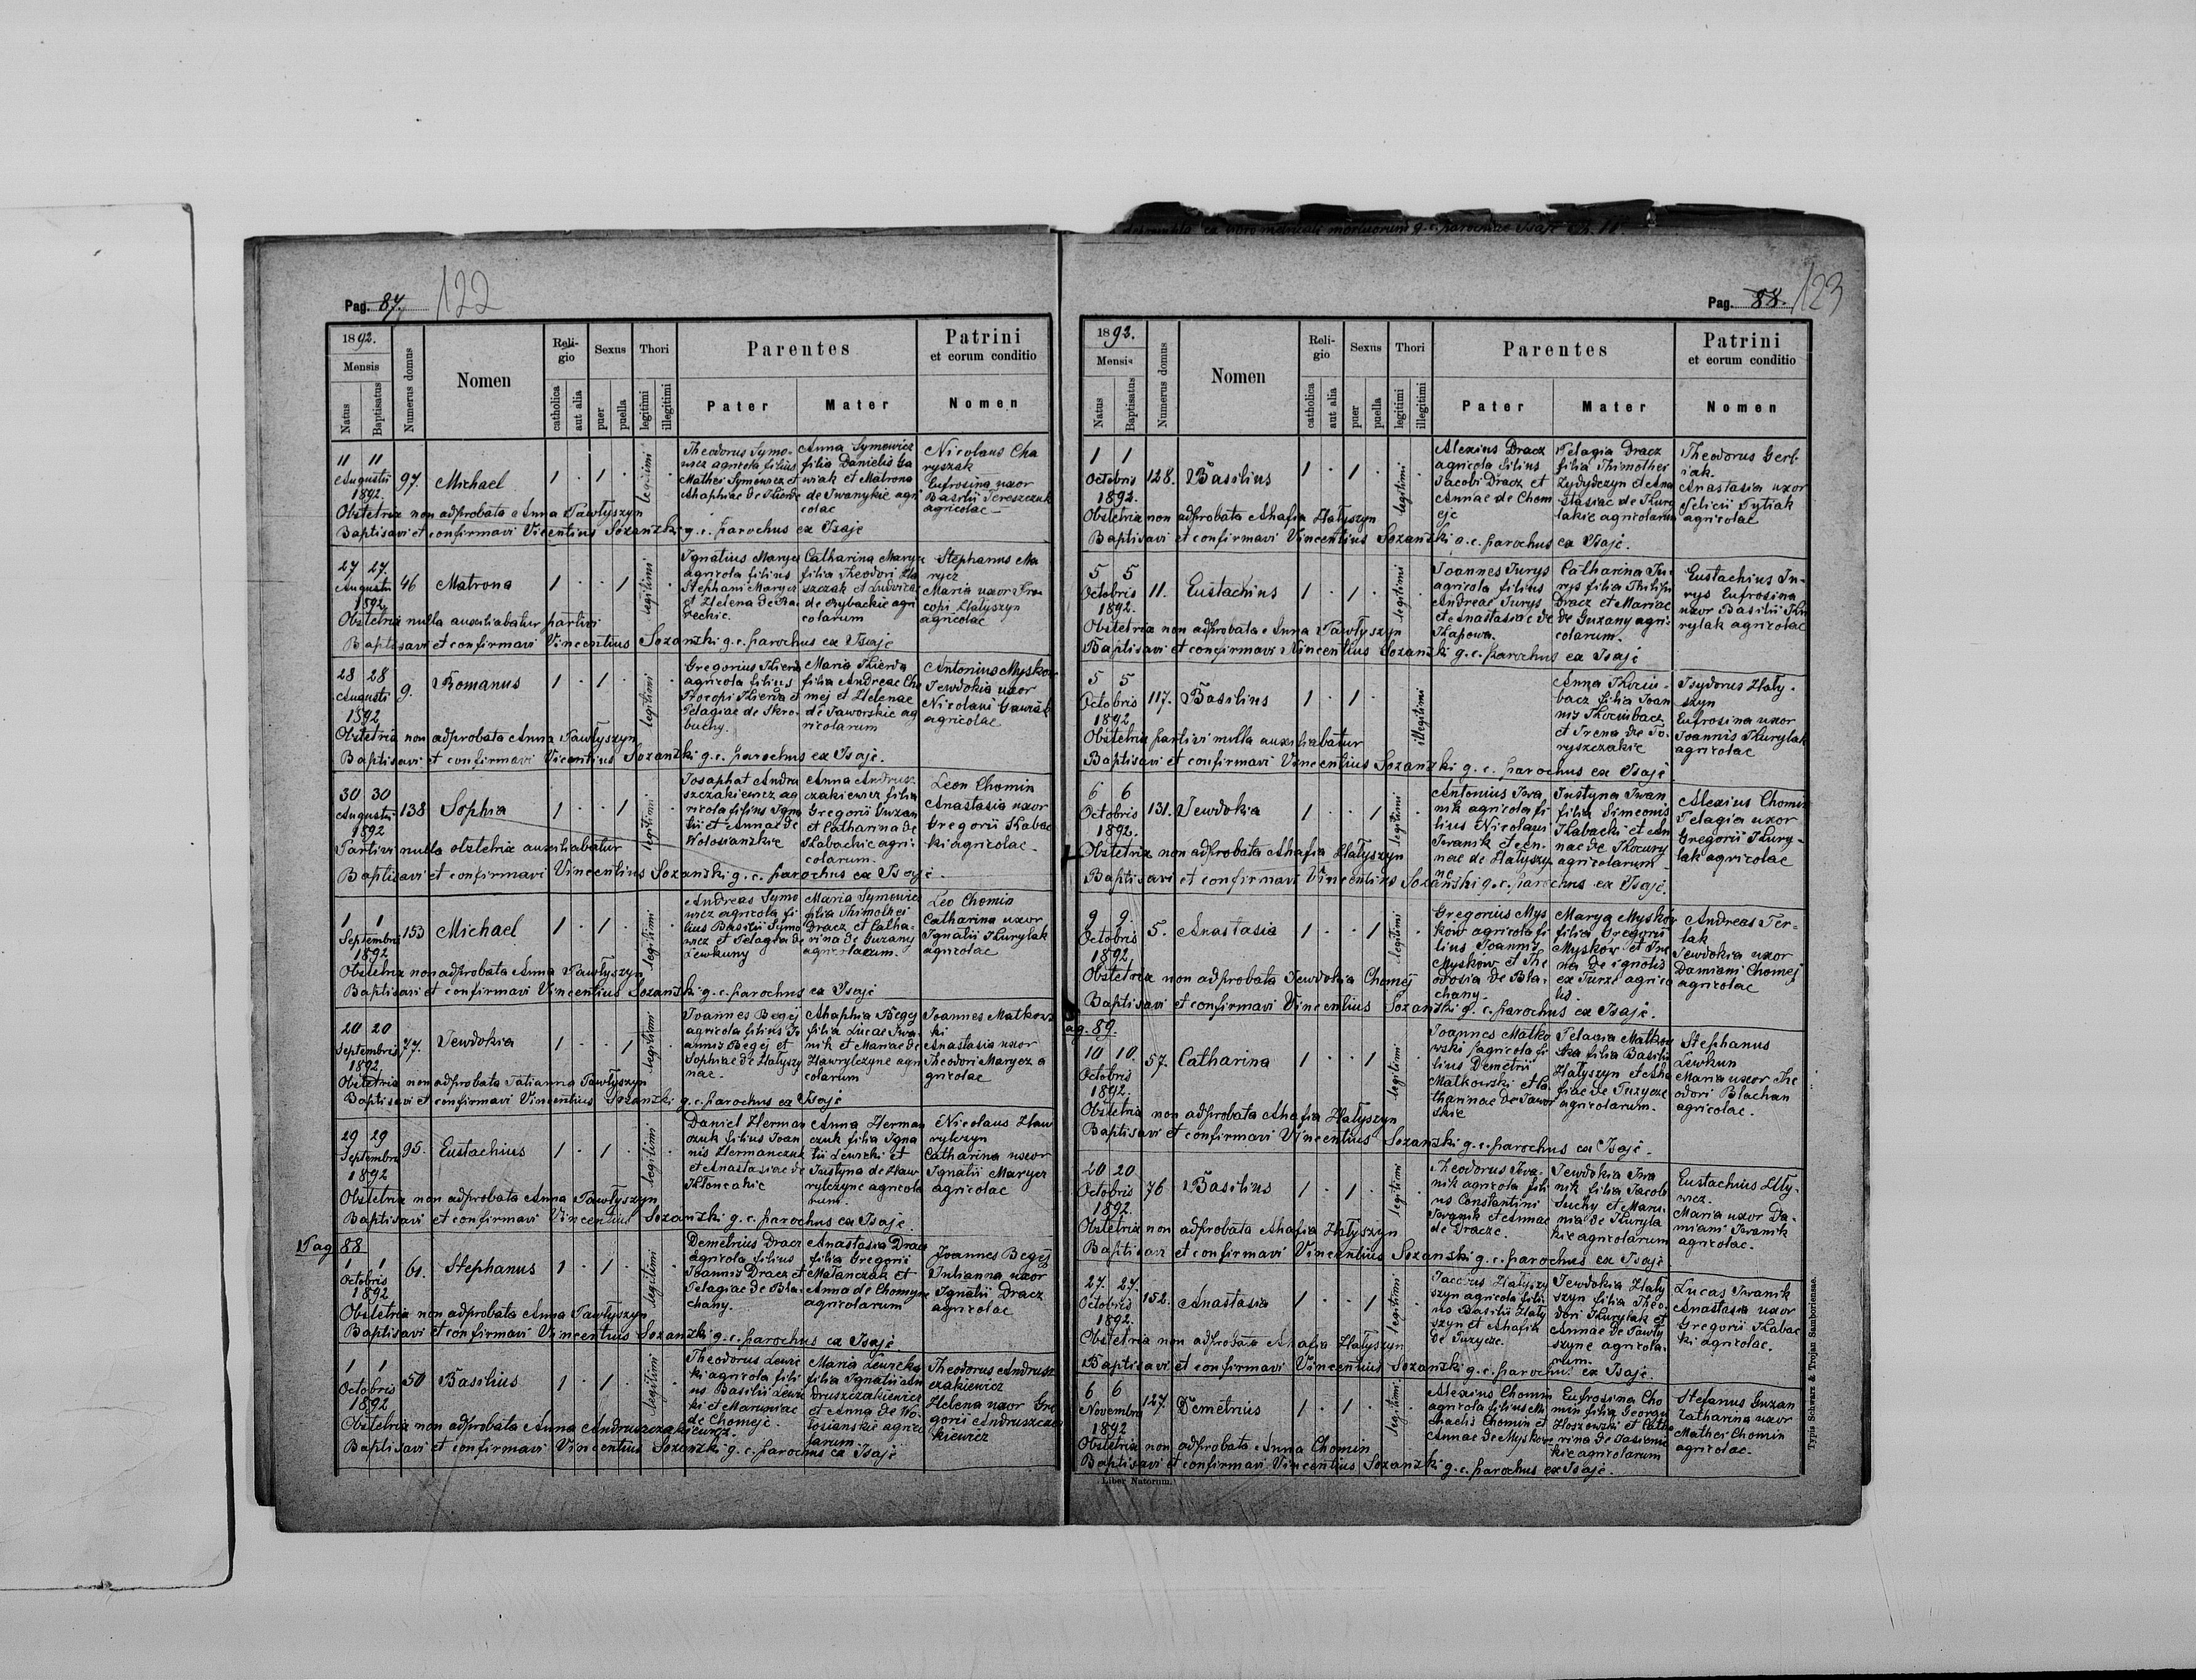 Pag. 87. 122
1892.
Mensis
Natus
Baptisatus
Numerus domus
Nomen
Reli-
gio
catholica
aut alia
Sexus
puer
puella
Thori
legitimi
illegitimi
Parentes
Pater
Mater
Patrini
et eorum conditio
Nomen
11 11
Augusti
1892.
97.
Michael
1 · 1 ·
legitimi
Theodorus Symo-
wicz agricola filius
Mathei Symowicz et
Ahaphiae de
Anna Symowicz
filia Danielis Ga
wiak et Matrona
de Iwanykie agri
colae
Nicolaus Cha
ryszak
Eufrosina uxor
Basilii Tereszczuk
agricolae
Obstetrix non adprobata Anna Pawłyszyn
Baptisavi et confirmavi Vicentius Sozański g. c. parochus ex Isaje
27 27.
Augusti
1892
46
Matrona
1 · · 1
legitimi
Ignatius Marycz
agricola filius
Stephani Marycz
et Helena de
Catharina Marycz
filia Theodori
et Ludovica
de Rybackie agri
colarum
Stephanus Ma
rycz
Maria uxor Pro
copi Hałyszyn
agricolae
Obstetrix nulla auxiliabatur partui
Baptisavi et confirmavi Vincentius Sozański g. c. parochus ex Isaje
28 28
Augusti
1892
9.
Romanus
1 · 1 ·
legitimi
Gregorius
agricola filius
Procopi
Pelagiae de Skro-
buchy.
Maria
filia Andreae Cho
mej et Helenae
de Jaworskie ag
ricolarum
Antonius Myskow
Jewdokia uxor
Nicolaui
agricolae
Obstetrix non adprobata Anna Pawłyszyn
Baptisavi et confirmavi Vicentius Sozański g. c. parochus ex Isaje.
30 30
Augusti
1892
138
Sophia
1 · · 1
legitimi
Josaphat Andru
szczakiewicz ag
ricola filius Igna
tii et Annae de
Wołosianskie
Anna Andrusz
czakiewicz filia
Gregorii Guzan
et Catharina de
Kabackie agri-
colarum.
Leon Chomin
Anastasia uxor
Gregorii Kabac
ki agricolae
Partui nulla obstetrix auxiliabatur
Baptisavi et confirmavi Vincentius Sozański g. c. parochus ex Isaje.
1 1
Septembris
1892
153
Michael
1 · 1 ·
legitimi
Andreas Symo
wicz agricola fi
lius Basilii Symo
wicz et Pelagia de
Lewkuny
Maria Symowicz
filia Thimothei
Dracz et Catha-
rina de Guzany
agricolarum.
Leo Chomin
Catharina uxor
Ignatii Kurylak
agricolae
Obstetrix non adprobata Anna Pawłyszyn
Baptisavi et confirmavi Vincentius Sozański g. c. parochus ex Isaje
20 20
Septembris
1892
77.
Jewdokia
1 · · 1
legitimi
Joannes Begej
agricola filius Jo
annis Begej et
Sophiae de Hałyszy
nac.
Ahaphia Begej
filia Lucae Iwa-
nik et Mariae de
Hawrylczyne agri
colarum
Joannes Matkows
ki
Anastasia uxor
Theodori Marycz a
gricolae
Obstetrix non adprobata Tatianna Pawłyszyn
Baptisavi et confirmavi Vincentius Sozański g. c. parochus ex Isaje
29 29
Septembris
1892
95.
Eustachius
1 · 1 ·
legitimi
Daniel Herman
czuk filius Joan
nis Hermanczuk
et Anastasiae de
Anna Herman
czuk filia Igna
tii Lewicki et
Justyna de Haw
rylczyne agricola
rum.
Nicolaus Haw
rylczyn
Catharina uxor
Ignatii Marycz
agricolae
Obstetrix non adprobata Anna Pawłyszyn
Baptisavi et confirmavi Vincentius Sozański g. c. parochus ex Isaje.
Pag 88
1 1
Octobris
1892
61.
Stephanus
1 · 1 ·
legitimi
Demetrius Dracz
agricola filius
Joannis Dracz et
Pelagiae de Bla-
chany.
Anastasia Dracz
filia Gregorii
Matanczak et
Anna de Chomyne
agricolarum
Joannes Begej
Julianna uxor
Ignatii Dracz
agricolae
Obstetrix non adprobata Anna Pawłyszyn
Baptisavi et confirmavi Vincentius Sozański g. c. parochus ex Isaje
1 1
Octobris
1892
50
Basilius
1 · 1 ·
legitimi
Theodorus Lewic
ki agricola fili
us Basilii Lewic
ki et Maruniae
de Chomeje.
Maria Lewicka
filia Ignatii An
druszczakiewicz
et Anna de Wo-
łosianskie agrico
larum
Theodorus Andrusz
czakiewicz
Helena uxor Gre
gorii Andruszcza
kiewicz
Obstetrix non adprobata Anna Andruszczakiewicz.
Baptisavi et confirmavi Vincentius Sozański g. c. parochus ex Isaje
ex libro metricali mortuorum g. c. parochiae Isaje
Pag. 88. 123
1892.
Mensis
Natus
Baptisatus
Numerus domus
Nomen
Reli-
gio
catholica
aut alia
Sexus
puer
puella
Thori
legitimi
illegitimi
Parentes
Pater
Mater
Patrini
et eorum conditio
Nomen
1 1
Octobris
1892.
128.
Basilius
1 · 1 ·
legitimi
Alexius Dracz
agricola filius
Jacobi Dracz et
Annae de Chom
eje
Pelagia Dracz
filia Thimothei
Zydydczyn et Ana
stasiae de Kury
lakie agricolarum
Theodorus Gerb
iak
Anastasia uxor
Felicii Pytiak
agricolae
Obstetrix non adprobata Ahafia Hałyszyn
Baptisavi et confirmavi Vincentius Sozański g. c. parochus ex Isaje.
5 5
Octobris
1892.
11.
Eustachius
1 · 1 ·
legitimi
Joannes Jurys
agricola filius
Andreae Jurys
et Anastasiae de
Catharina Ju-
rys filia Philippi
Dracz et Mariae
de Guzany agri-
colarum.
Eustachius Ju-
rys Eufrosina
uxor Basilii Ku
rylak agricolae
Obstetrix non adprobata Anna Pawłyszyn
Baptisavi et confirmavi Vincentius Sozański g. c. parochus ex Isaje
5 5
Octobris
1892
117.
Basilius
1 · 1 ·
illegitimi
Anna Kocim-
bacz filia Joan
nis Kocimbacz
et Irena de To-
ryszczakie
Isydorus Hały-
szyn
Eufrosina uxor
Joannis Kurylak
agricolae
Obstetrix partui nulla auxiliabatur
Baptisavi et confirmavi Vincentius Sozański g. c. parochus ex Isaje
6 6
Octobris
1892.
131.
Jewdokia
1 · · 1
legitimi
Antonius Iwa
nik agricola fi
lius Nicolaui
Iwanik et An-
nae de Hałyszy
ne
Justyna Iwan
filia Simeonis
Kabacki et An
nae de Kocury
agricolarum
Alexius Chomin
Pelagia uxor
Gregorii Kury-
lak agricolae
Obstetrix non adprobata Ahafia Hałyszyn
Baptisavi et confirmavi Vincentius Sozański g. c. parochus ex Isaje.
9 9.
Octobris
1892
5.
Anastasia
1 · · 1
legitimi
Gregorius Mys
kow agricola fi
lius Joannis
Myskow et The
odosia de Bla-
chany.
Marya Myskow
filia Gregorii
Myskow et Ire
na de ignotis
ex Turze agrico
lis.
Andreas Ter-
lak
Jewdokia uxor
Damiani Chomej
agricolae
Obstetrix non adprobata Jewdokia Chomej
Baptisavi et confirmavi Vincentius Sozański g. c. parochus ex Isaje.
ag. 89.
10 10.
Octobris
1892.
57.
Catharina
1 · · 1
legitimi
Joannes Matko
wski agricola fi
lius Demetrii
Matkowski et Ca
tharinae de Jawor
skie
Pelagia Matkow
ska filia Basilii
Hałyszyn et Aha
fiae de Tuzycze
agricolarum.
Stephanus
Lewkun
Maria uxor The
odori Blachan
agricolae.
Obstetrix non adprobata Ahafia Hałyszyn
Baptisavi et confirmavi Vincentius Sozański g. c. parochus ex Isaje.
20 20
Octobris
1892.
76
Basilius
1 · 1 ·
legitimi
Theodorus Iwa-
nik agricola fili
us Constantini
Iwanik et Annae
de Dracze.
Jewdokia Iwa
nik filia Jacob
Suchy et Maru-
nia de Kuryla
kie agricolarum
Eustachius
wicz.
Maria uxor Da-
miani Iwanik
agricolae.
Obstetrix non adprobata Ahafia Hałyszyn
Baptisavi et confirmavi Vincentius Sozański g. c. parochus ex Isaje
27. 27.
Octobris
1892.
152.
Anastasia
1 · · 1
legitimi
Jacobus Hałyszy
szyn agricola fili
us Basilii Hały
szyn et Ahafia
de Tuzycze.
Jewdokia Hały
szyn filia Theo-
dori Kurylak et
Annae de Pawły
szyne agricola-
rum.
Lucas Iwanik
Anastasia uxor
Gregorii Kabac
ki agricolae.
Obstetrix non adprobata Ahafia Hałyszyn
Baptisavi et confirmavi Vincentius Sozański g. c. parochus ex Isaje.
6 6
Novembris
1892
127.
Demetrius
1 · 1 ·
legitimi
Alexius Chomin
agricola filius Mi
chaeli Chomin et
Annae de Myskow
Eufrosina Cho
min filia Georgii
Hoszowski et Catha
rina de Jasienic
kie agricolarum
Stefanus Guzan
Catharina uxor
Mathei Chomin
agricolae.
Obstetrix non adprobata Anna Chomin
Baptisavi et confirmavi Vincentius Sozański g. c. parochus ex Isaje.
Liber Natorum.
Typis Schwarz & Trojan Samboriensae.